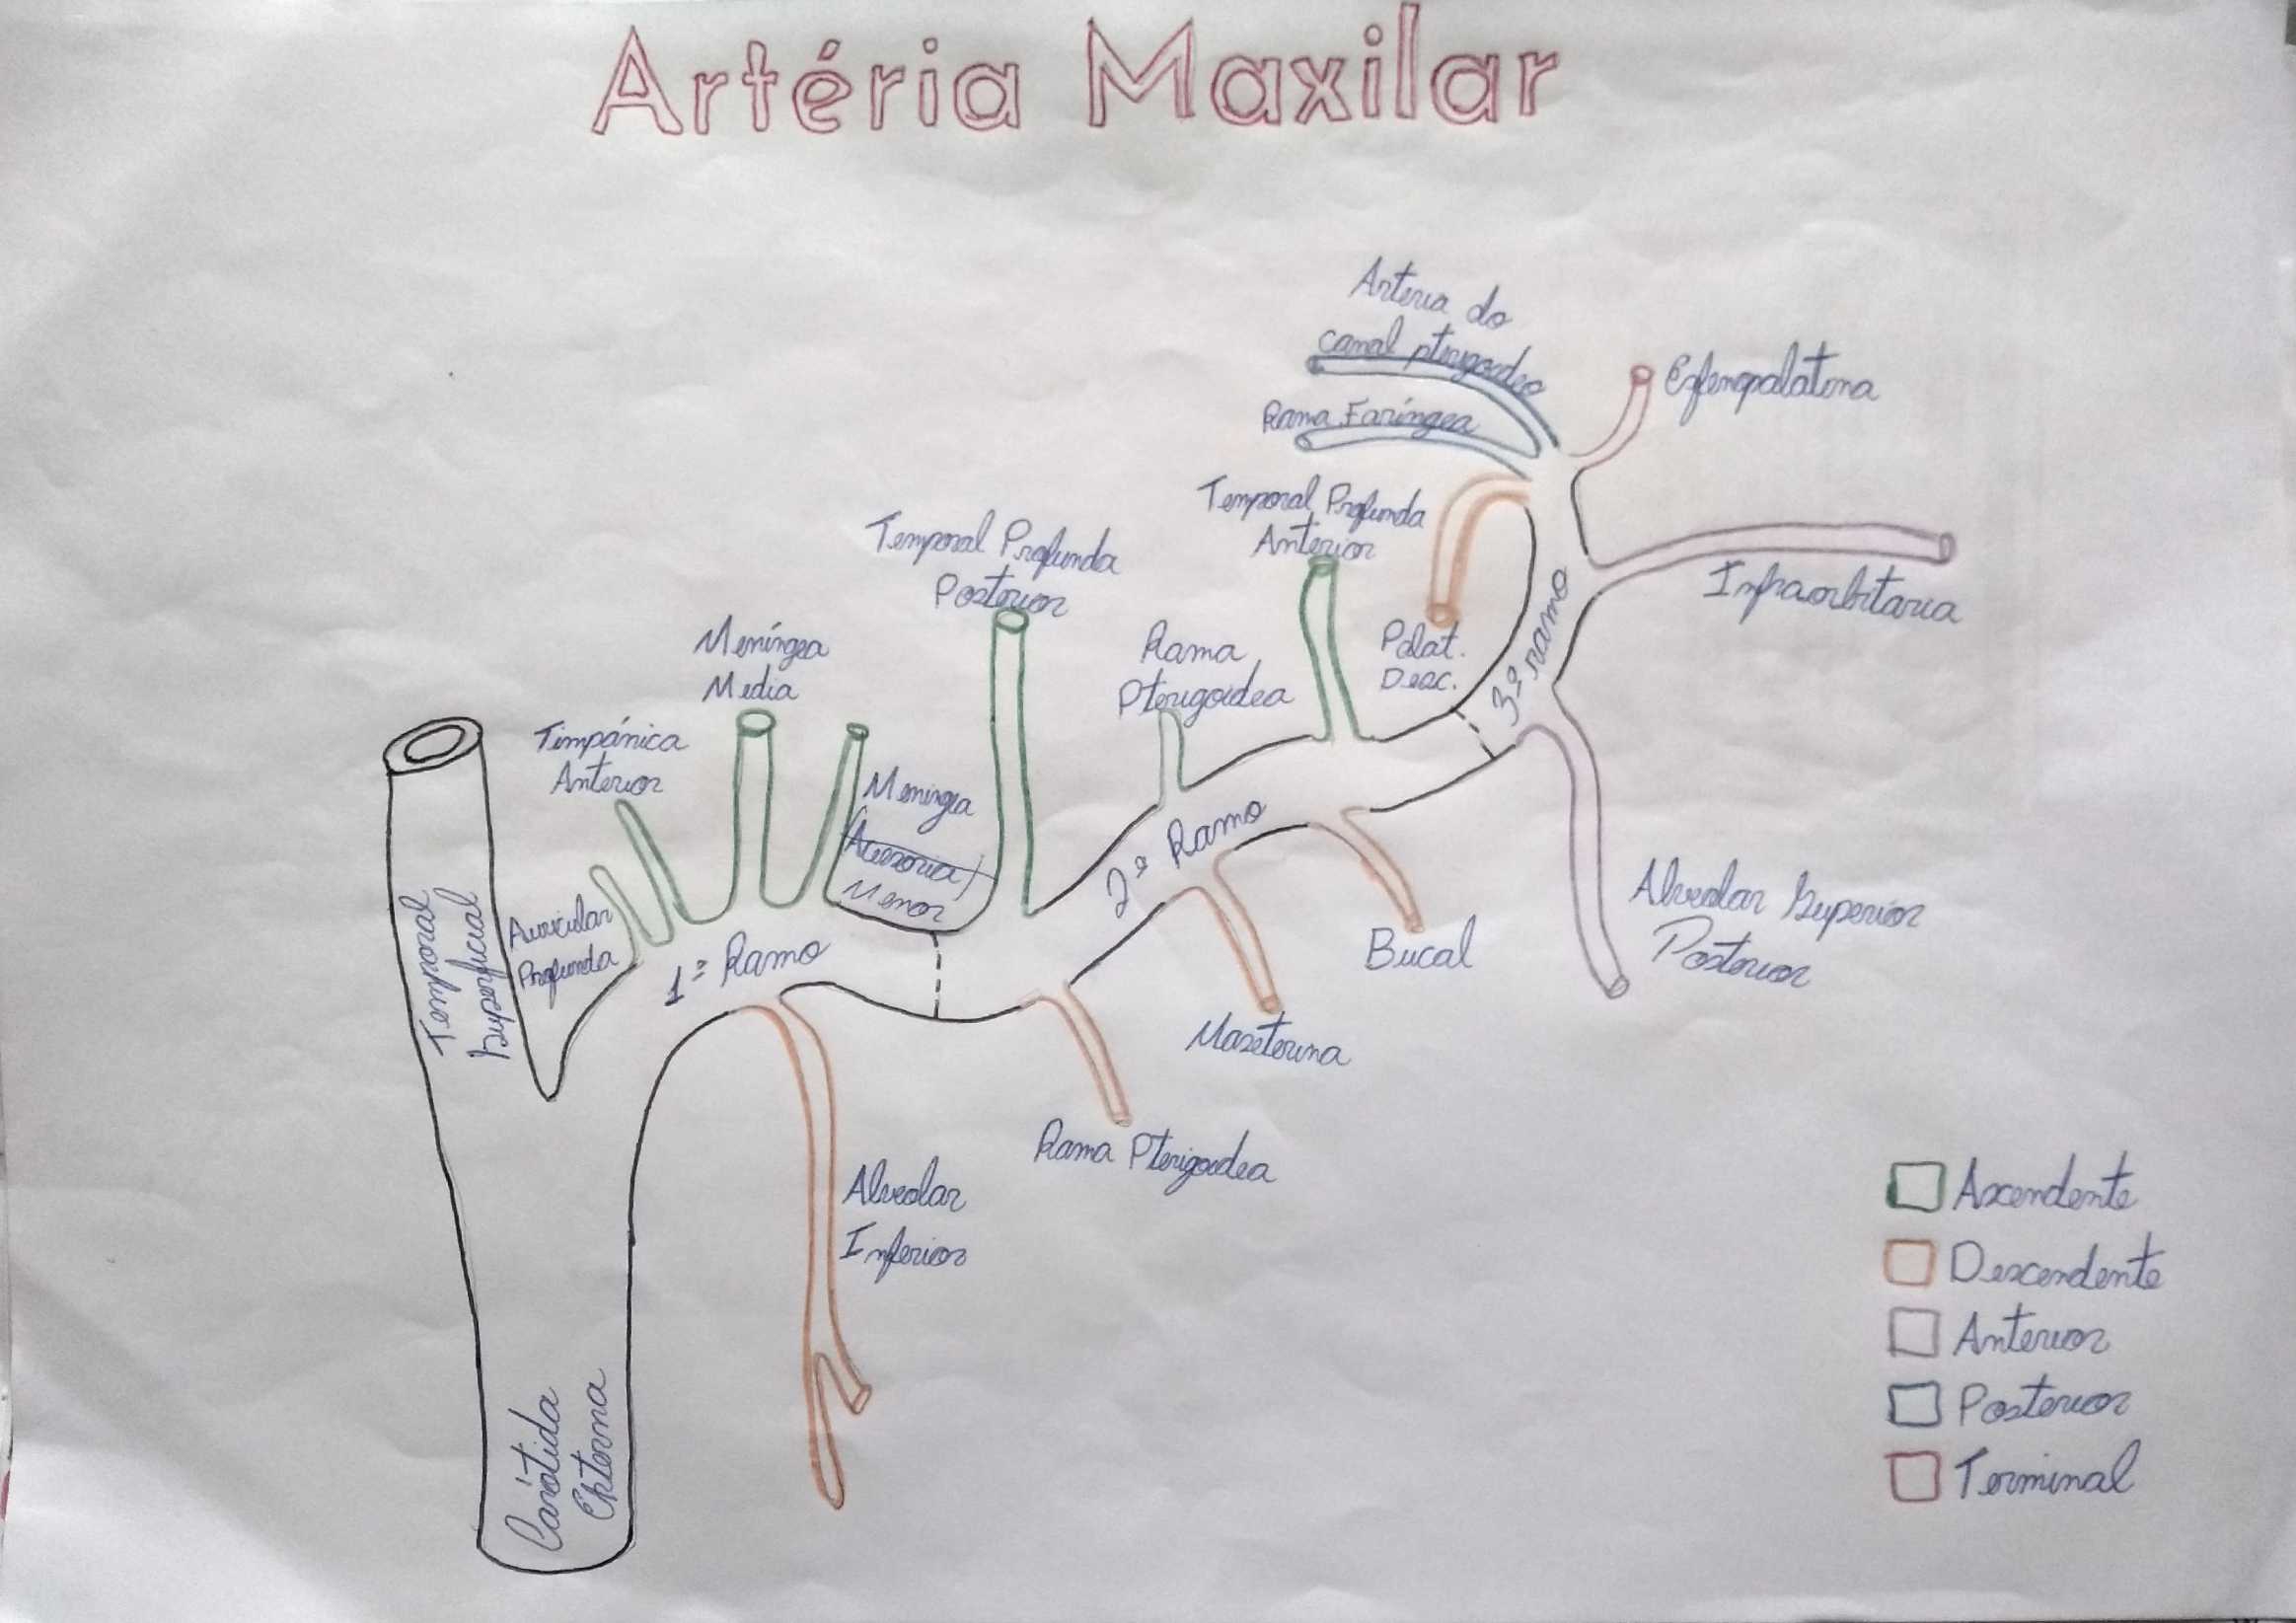 Artéria Maxilar
Arteria do
canal pterigoideo
Rama Faríngea
Esfenopalatina
Temporal Profunda
Anterior
Temporal Profunda
Posterior
Infraorbitaria
Meníngea
Media
Rama
Pterigoidea
Palat.
Desc.
3º ramo
Timpánica
Anterior
Meningea
Acessoria
Menor
2º Ramo
Auricular
Profunda
1º Ramo
Temporal
Superficial
Alveolar Superior
Posterior
Bucal
Maseterina
Rama Pterigoidea
Alveolar
Inferior
Carótida
Externa
Ascendente
Descendente
Anterior
Posterior
Terminal